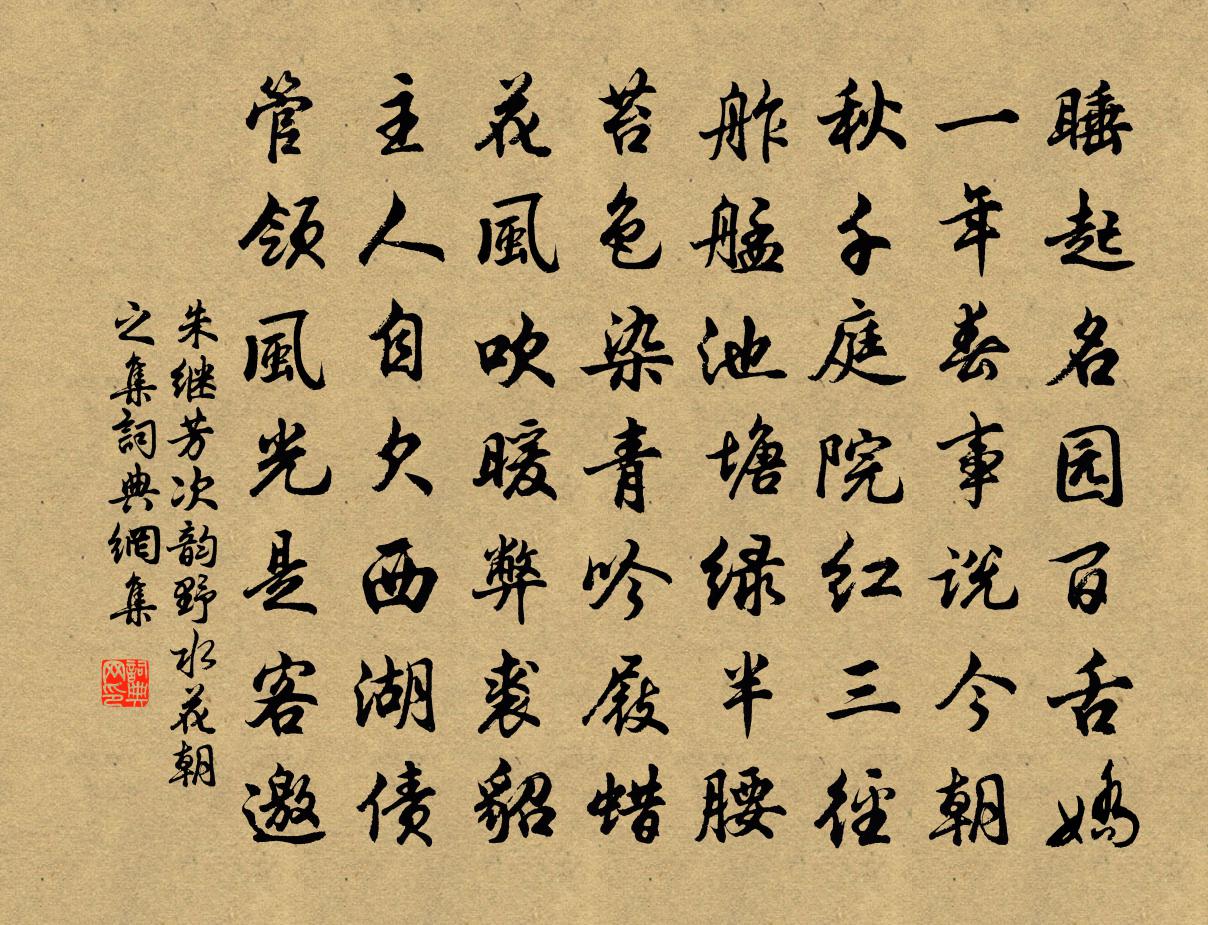 睡起名园百舌娇
一年春事说今朝
秋千庭院红三径
舴艋池塘绿半腰
苔色染青吟屐蜡
花風吹暖弊裘貂
主人自欠西湖债
管领風光是客邀
朱继芳次韵野水花朝
之集詞典網集
詞典网印